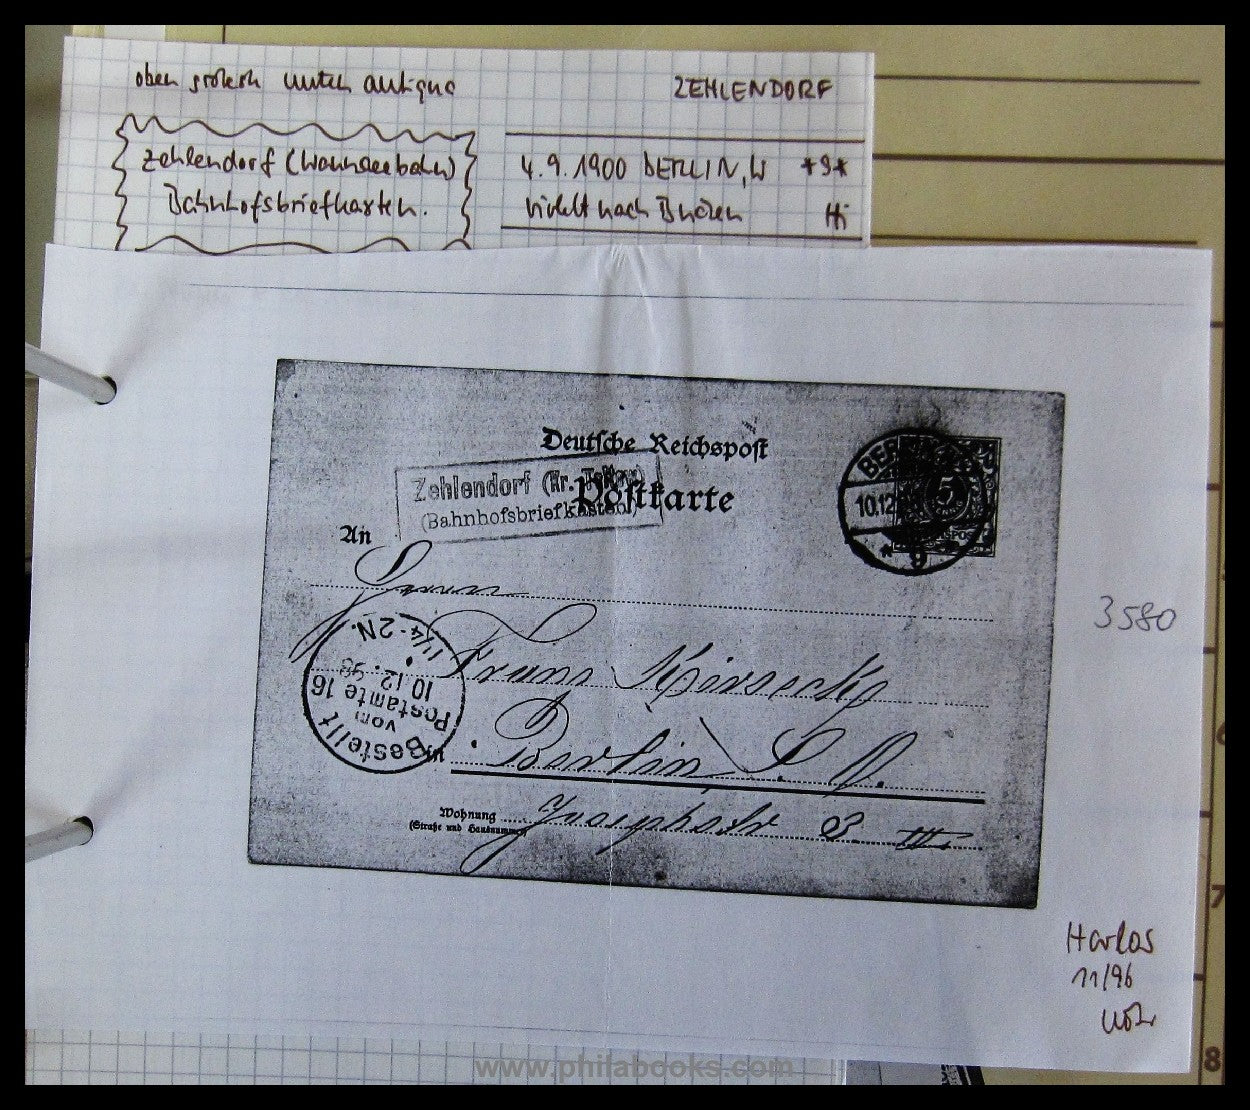 oben grotesk unten antiqua
ZEHLENDORF
Zehlendorf (Wannseebahn)
Bahnhofsbriefkasten.
4.9.1900 BERLIN, W *9*
nach
Hi
Deutsche Reichspost
Postkarte
Zehlendorf (Kr. Teltow)
(Bahnhofsbriefkasten)
BER
10.12
* 9
5
An
Herrn
Franz
in Berlin S. O.
Wohnung
(Straße und Hausnummer)
Josephstr 8. III
Bestellt
vom
Postamte 16
10.12.98
1¼-2N.
3580
Harlos
11/96
7
8
www.philabooks.com